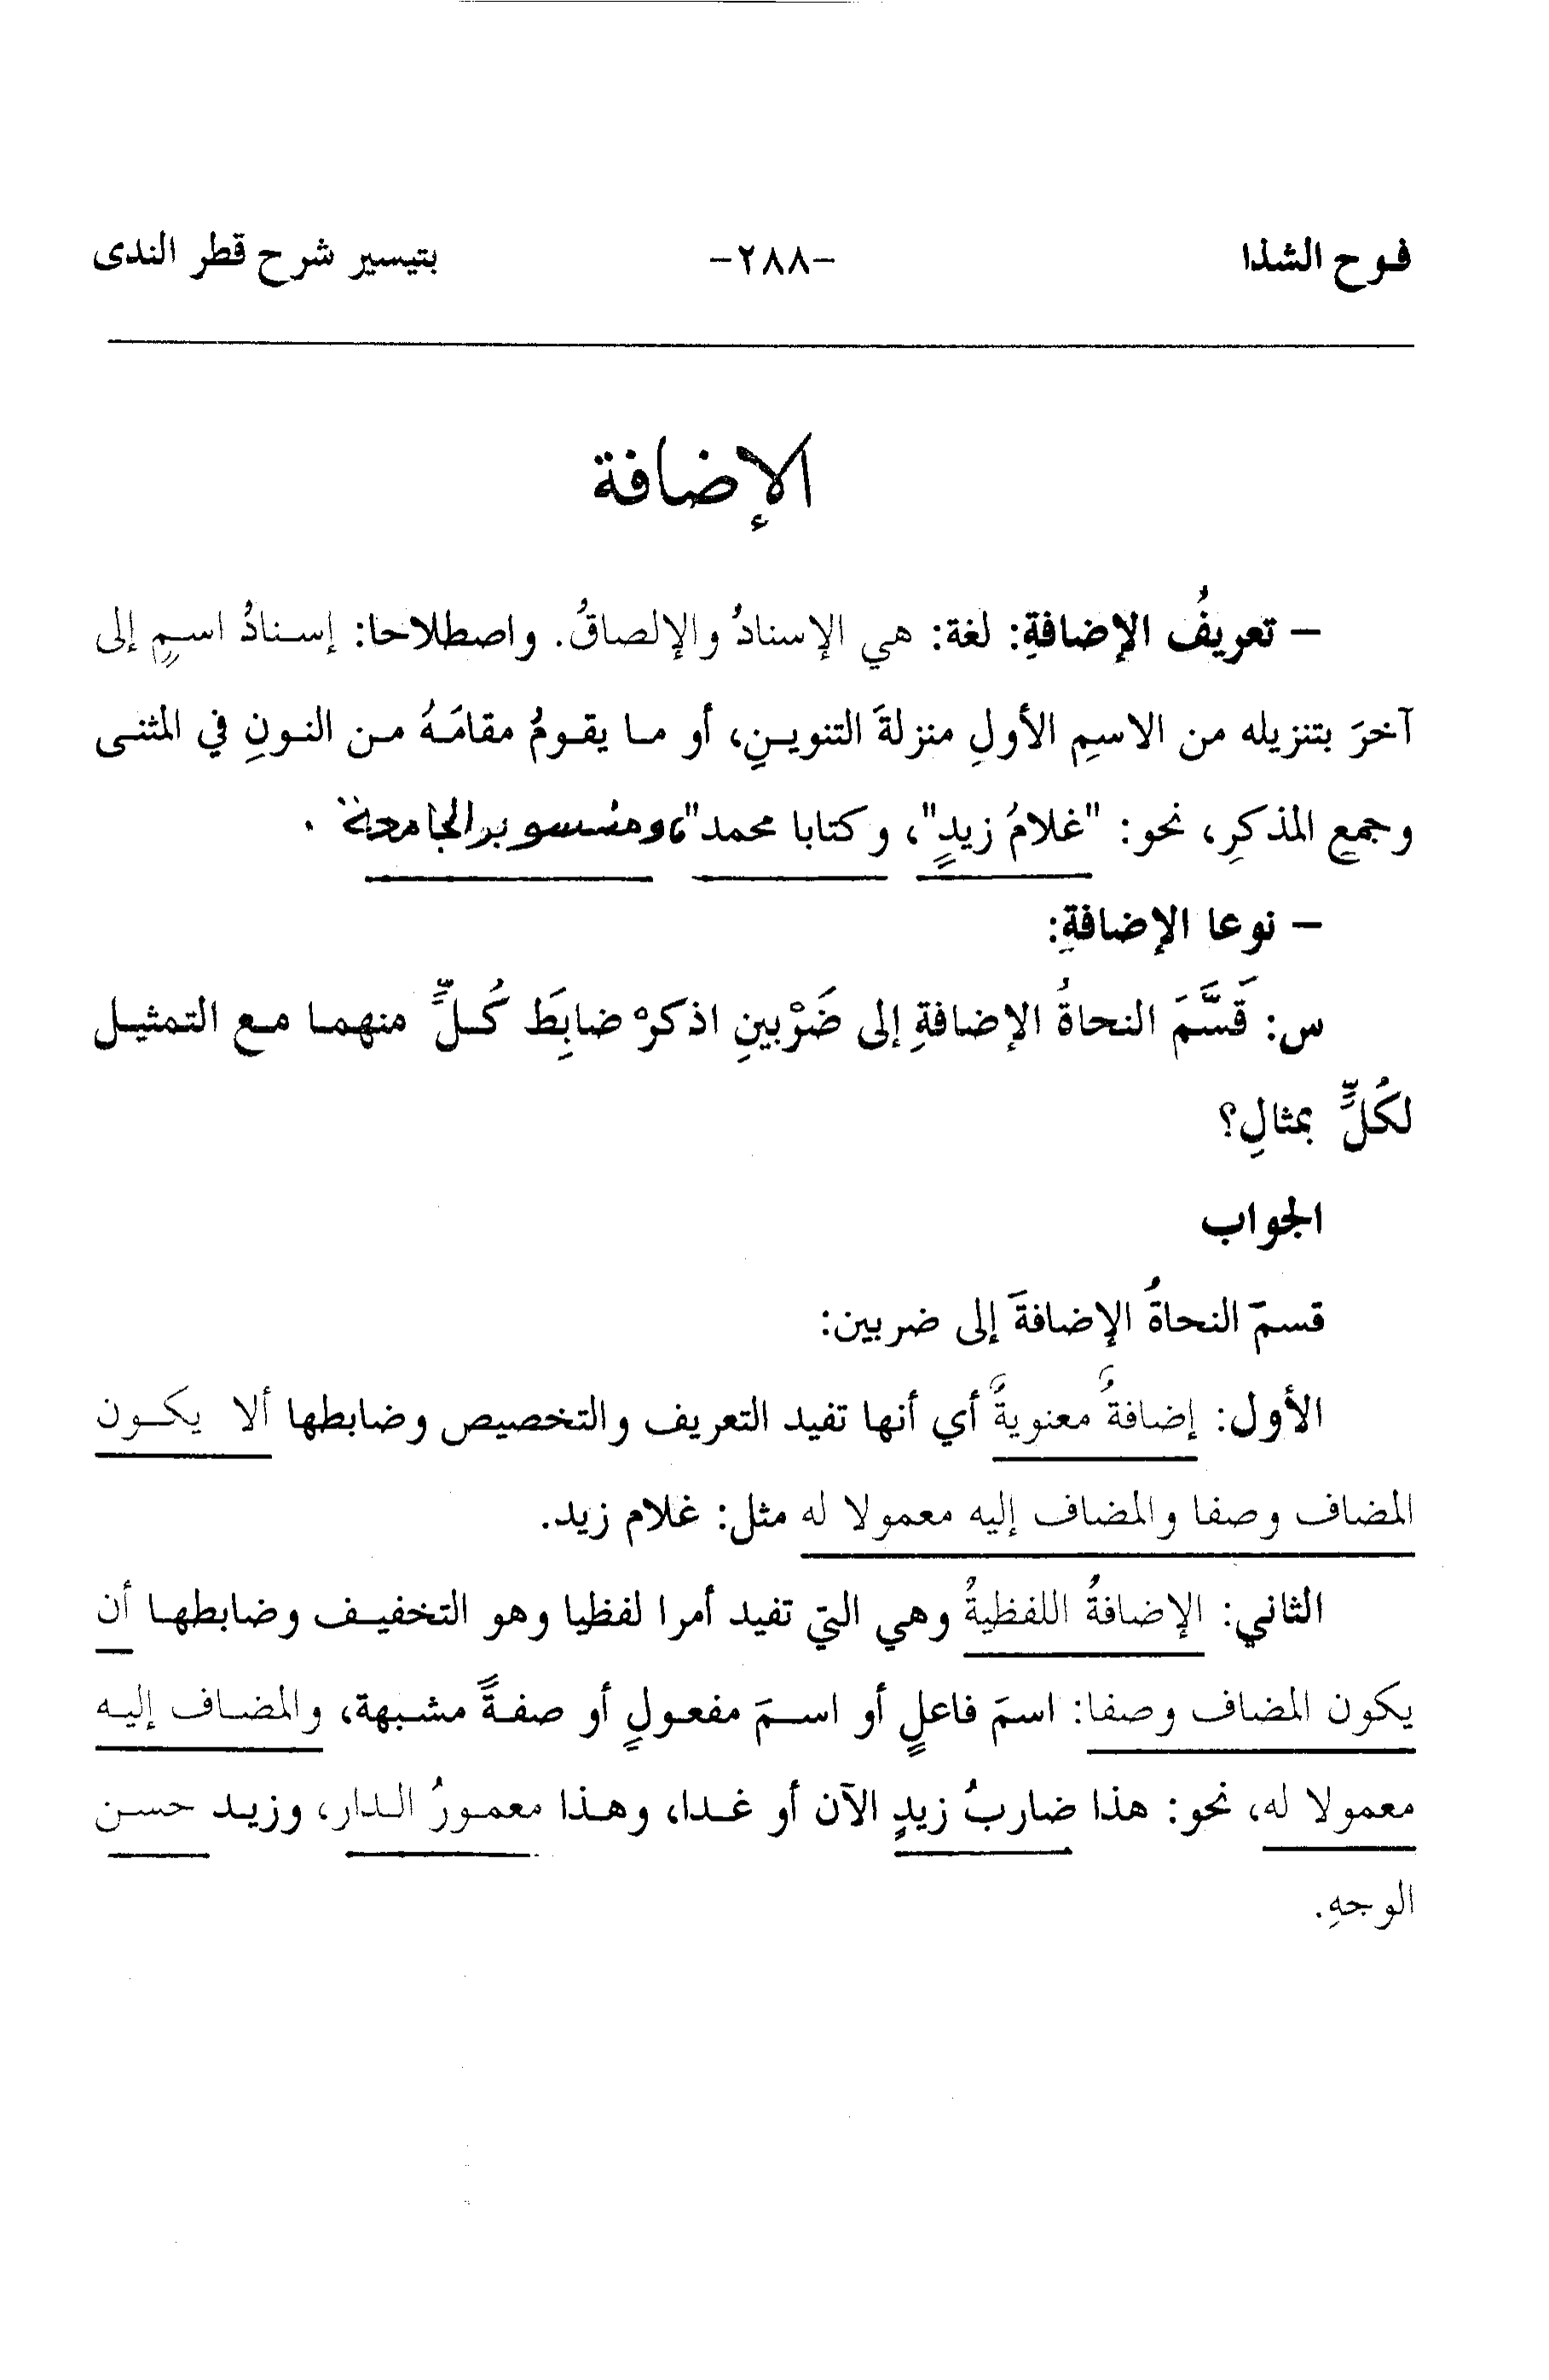 فوح الشذا -٢٨٨- بتيسير شرح قطر الندى
الإضافة
– تعريفُ الإضافةِ: لغة: هي الإسنادُ والإلصاقُ. واصطلاحا: إسنادُ اسمٍ إلى
آخرَ بتنزيله من الاسمِ الأولِ منزلةَ التنوينِ، أو ما يقومُ مقامَهُ من النونِ في المثنى
وجمع المذكرِ، نحو: "غلامُ زيدٍ"، وكتابا محمد"، ومنسوبو الجامعة".
– نوعا الإضافةِ:
س: قَسَّمَ النحاةُ الإضافةِ إلى ضَرْبينِ اذكرْ ضابِطَ كُلٍّ منهما مع التمثيل
لكُلٍّ بمثالِ؟
الجواب
قسمَ النحاةُ الإضافةَ إلى ضربين:
الأول: إضافةٌ معنويةٌ أي أنها تفيد التعريف والتخصيص وضابطها ألا يكون
المضاف وصفا والمضاف إليه معمولا له مثل: غلام زيد.
الثاني: الإضافةُ اللفظيةُ وهي التي تفيد أمرا لفظيا وهو التخفيف وضابطها أن
يكون المضاف وصفا: اسمَ فاعلٍ أو اسمَ مفعولٍ أو صفةً مشبهة، والمضاف إليه
معمولا له، نحو: هذا ضاربُ زيدٍ الآن أو غدا، وهذا معمورُ الدار، وزيد حسن
الوجهِ.